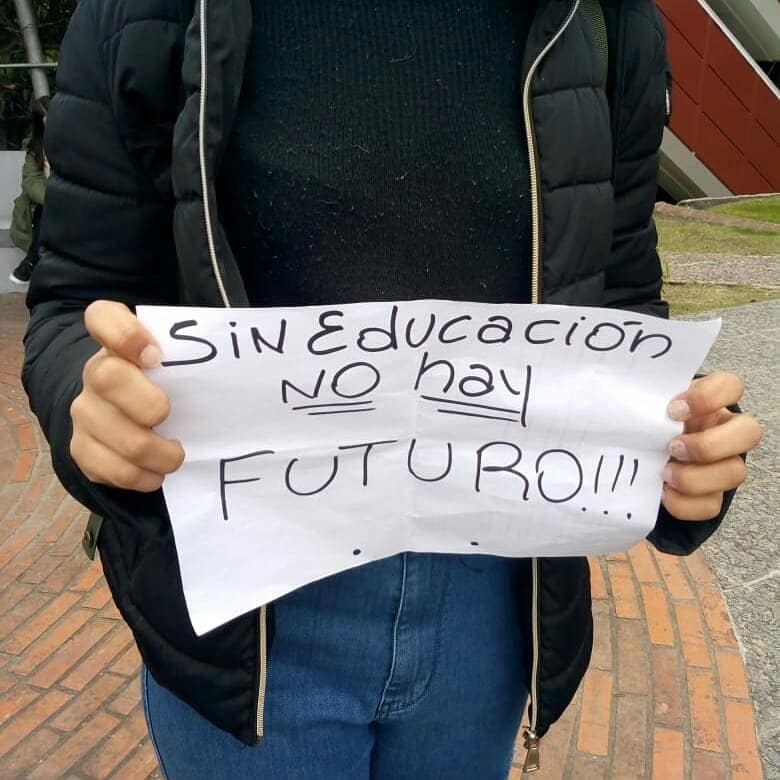 SiN Educación
NO hay
FUTURO!!!